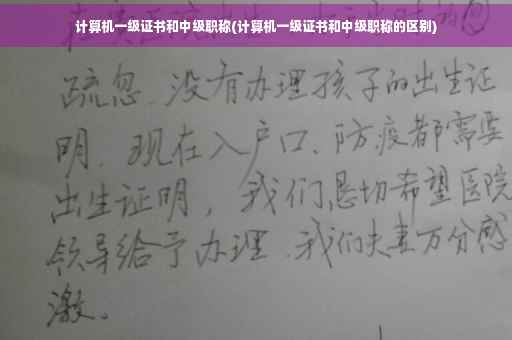 计算机一级证书和中级职称(计算机一级证书和中级职称的区别)
疏忽、没有办理孩子的出生证
明、现在入户口、防疫都需要
出生证明，我们恳切希望医院
领导给予办理、我们夫妻万分感
激。